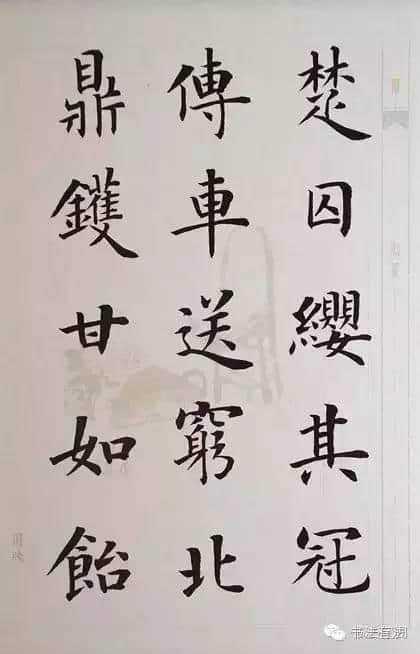 楚囚纓其冠
傳車送窮北
鼎鑊甘如飴
书法有法